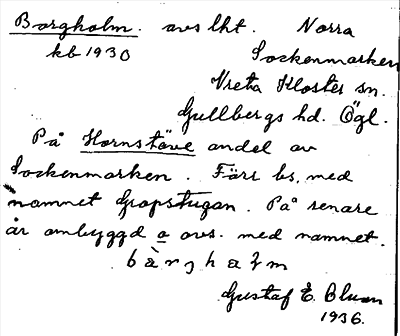 Borgholm. avs lht. Norra
kb 1930 Sockenmarken
Vreta Kloster sn.
Gullbergs hd. Ögl.
På Hornstäve andel av
Sockenmarken. Färr bs, med
namnet Gropstugan. På senare
år ombyggd o avs. med namnet.
bàrghałm
Gustaf E. Bluan
1936.